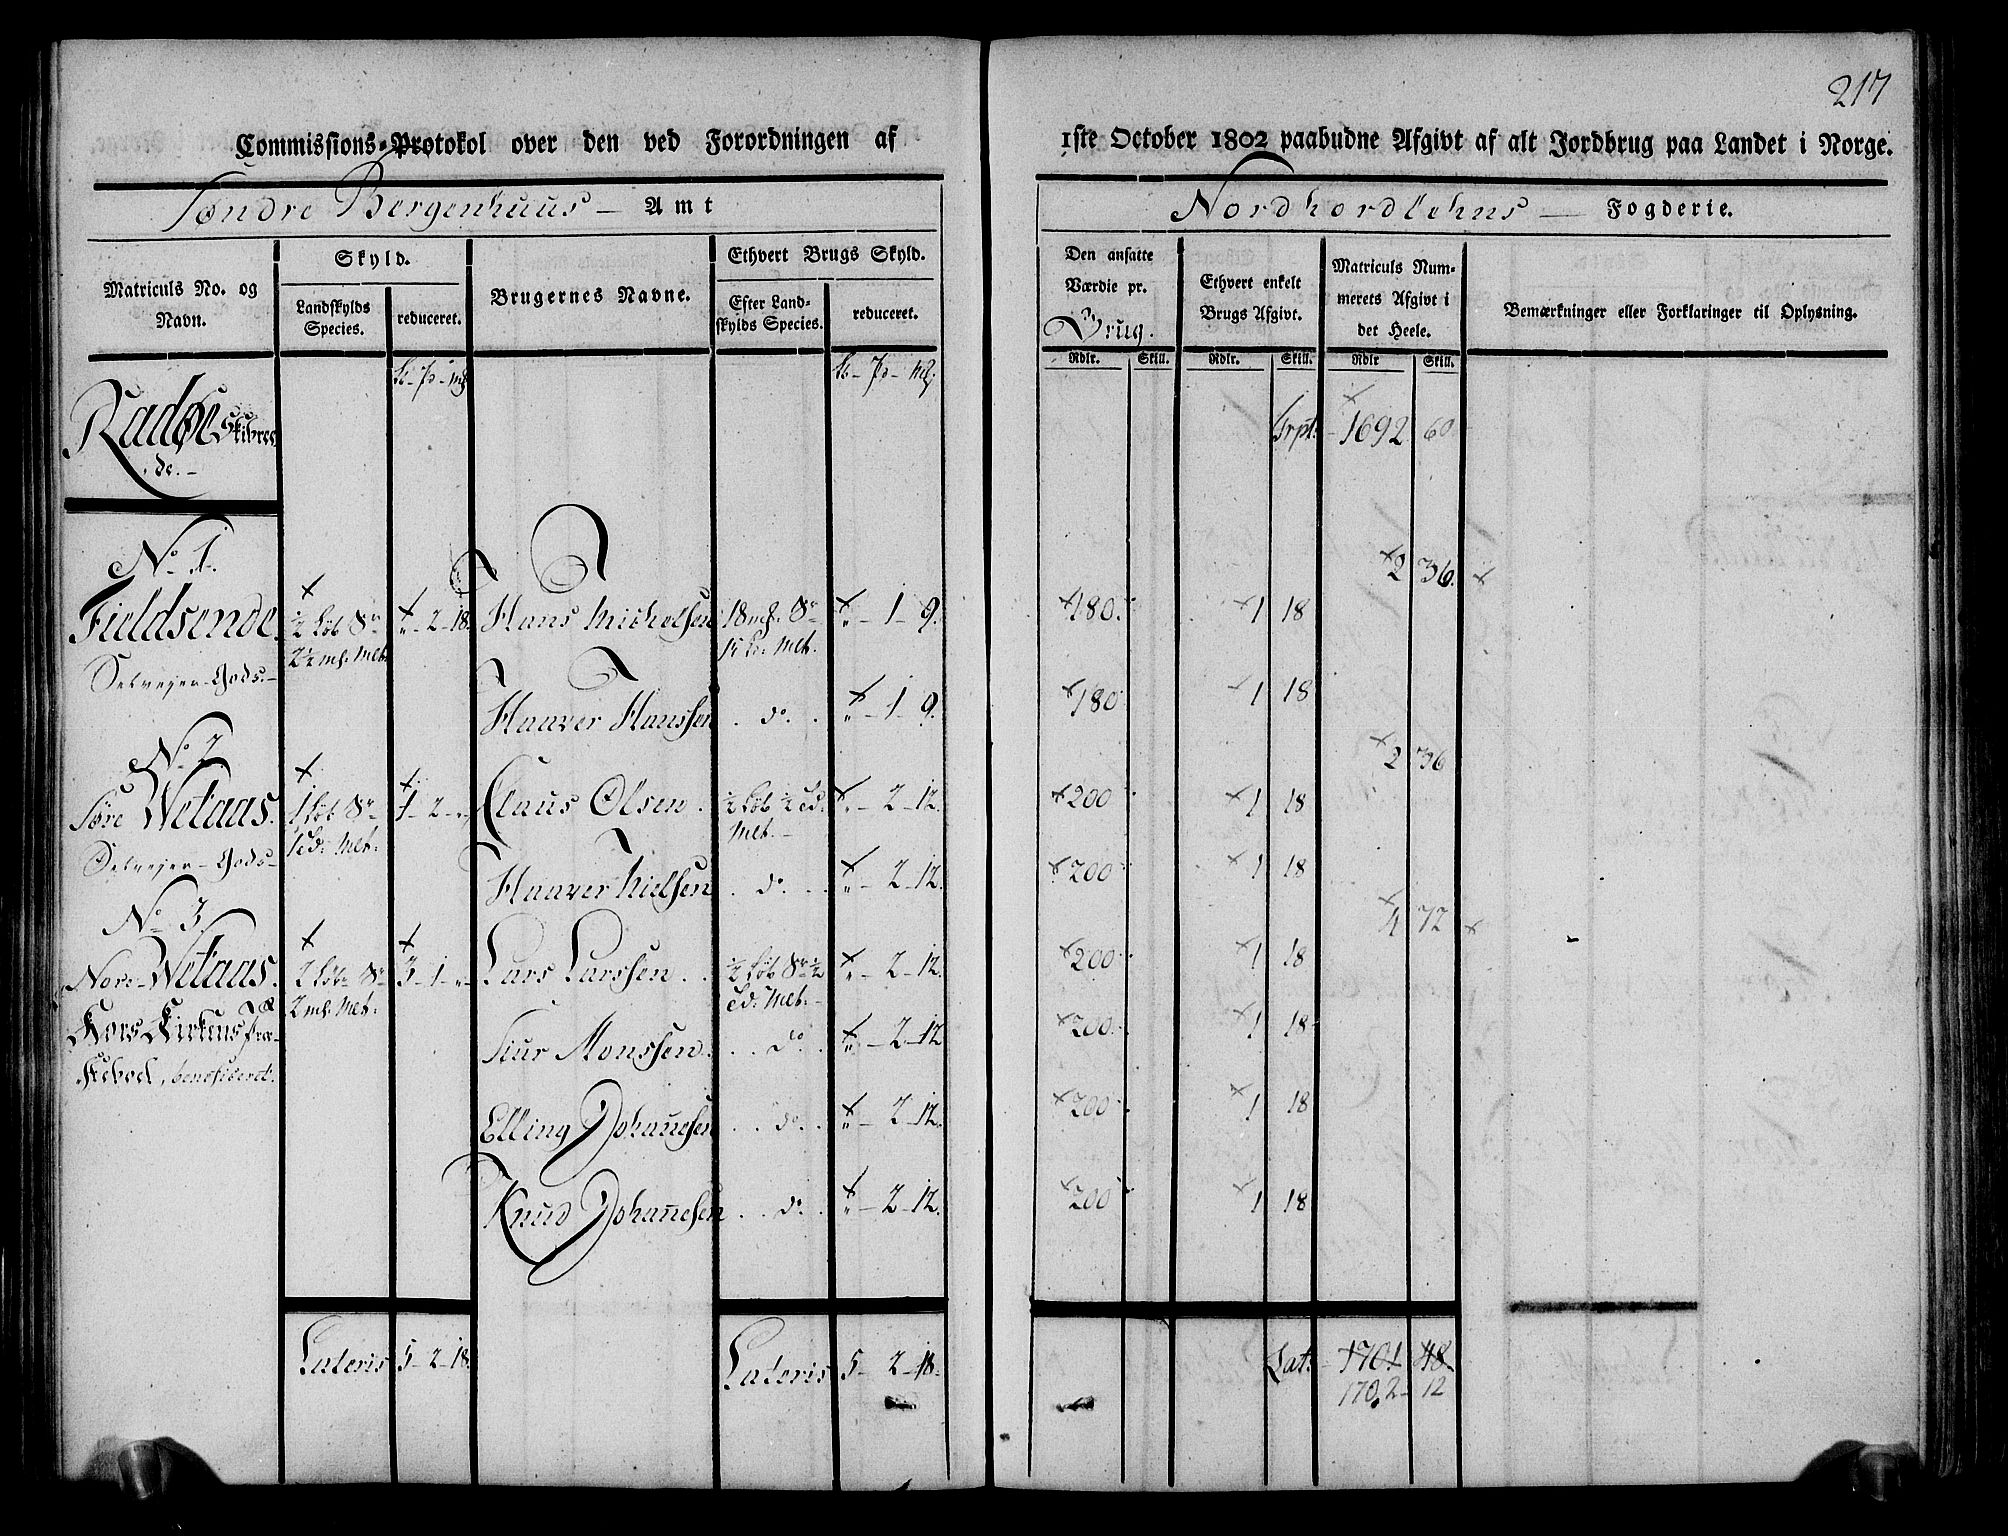 217
Commissions-Protokol over den ved Forordningen af 1ste October 1802 paabudne Afgivt af alt Jordbrug paa Landet i Norge.
Søndre Bergenhuus Amt
Nordhordlehns Fogderie.
Matriculs No. og Navn.
Skyld.
Landskylds Species.
reduceret.
Brugernes Navne.
Ethvert Brugs Skyld.
Efter Landskylds Species.
reduceret.
Den ansatte Værdie pr. Brug.
Ethvert enkelt Brugs Afgivt.
Matriculs Nummerets Afgivt i det Heele.
Bemærkninger eller Forklaringer til Oplysning.
Rdlr. Skill. Rdlr. Skill. Rdlr Skill.
Radøe Skibrede.
Trpt. 1692 60
No 1.
2 36.
Fieldsende. ½ Løb Sr 2½ mk. Melt. " - 2 - 18. Hans Michelsen 18 mk. Sr " - 1 - 9. 180. 1 18
Selvejer-Gods.
Haaver Hanssen do. " - 1 - 9. 180 1 18
No 2.
2 36
Søre Wetaas. 1 Løb Sr 1 Sd: Melt: 1 - 2 - " Claus Olsen. ½ Løb ½ Sd: Melt. " - 2 - 12. 200 1 18
Selvejer-Gods
Haaver Nielsen do. " - 2 - 12. 200 1 18
No 3
4 72
Nore Wetaas. 2 Løb Sr 2 mk. Melt: 3 - 1 - " Lars Larssen. ½ Løb Sr ½ Sd: Melt. " - 2 - 12. 200 1 18
Kors Kirkens
Siur Monssen. do. " - 2 - 12 200 1 18
beneficeret.
Elling Johanesen do. " - 2 - 12. 200 1 18
Knud Johanesen do. " - 2 - 12. 200 1 18
Lateris 5 - 2 - 18. Lateris 5 - 2 - 18. Lat: 1701 48.
1702 - 12